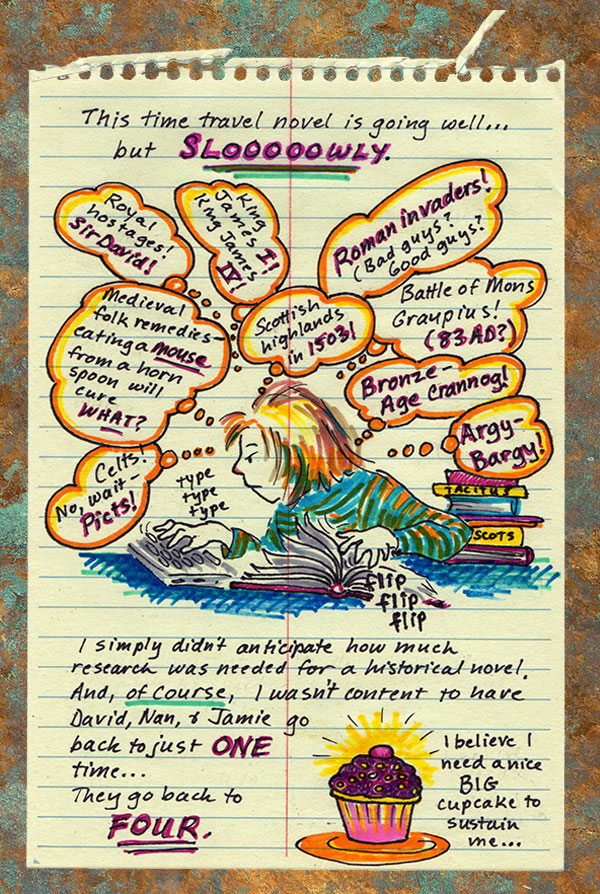 This time travel novel is going well...
but SLOOOOOWLY.
Royal
hostages!
Sir David!
King
James I!
King James
IV!
Roman invaders!
(Bad guys?
Good guys?
Medieval
folk remedies-
eating a mouse
from a horn
spoon will
cure
WHAT?
Scottish
highlands
in 1503!
Battle of Mons
Graupius!
(83 AD?)
Bronze-
Age crannog!
Argy-
Bargy!
Celts!
No, wait-
Picts!
type
type
type
TACITUS
SCOTS
flip
flip
flip
I simply didn't anticipate how much
research was needed for a historical novel.
And, of course, I wasn't content to have
David, Nan, & Jamie go
back to just ONE
time...
They go back to
FOUR.
I believe I
need a nice
BIG
cupcake to
sustain
me...